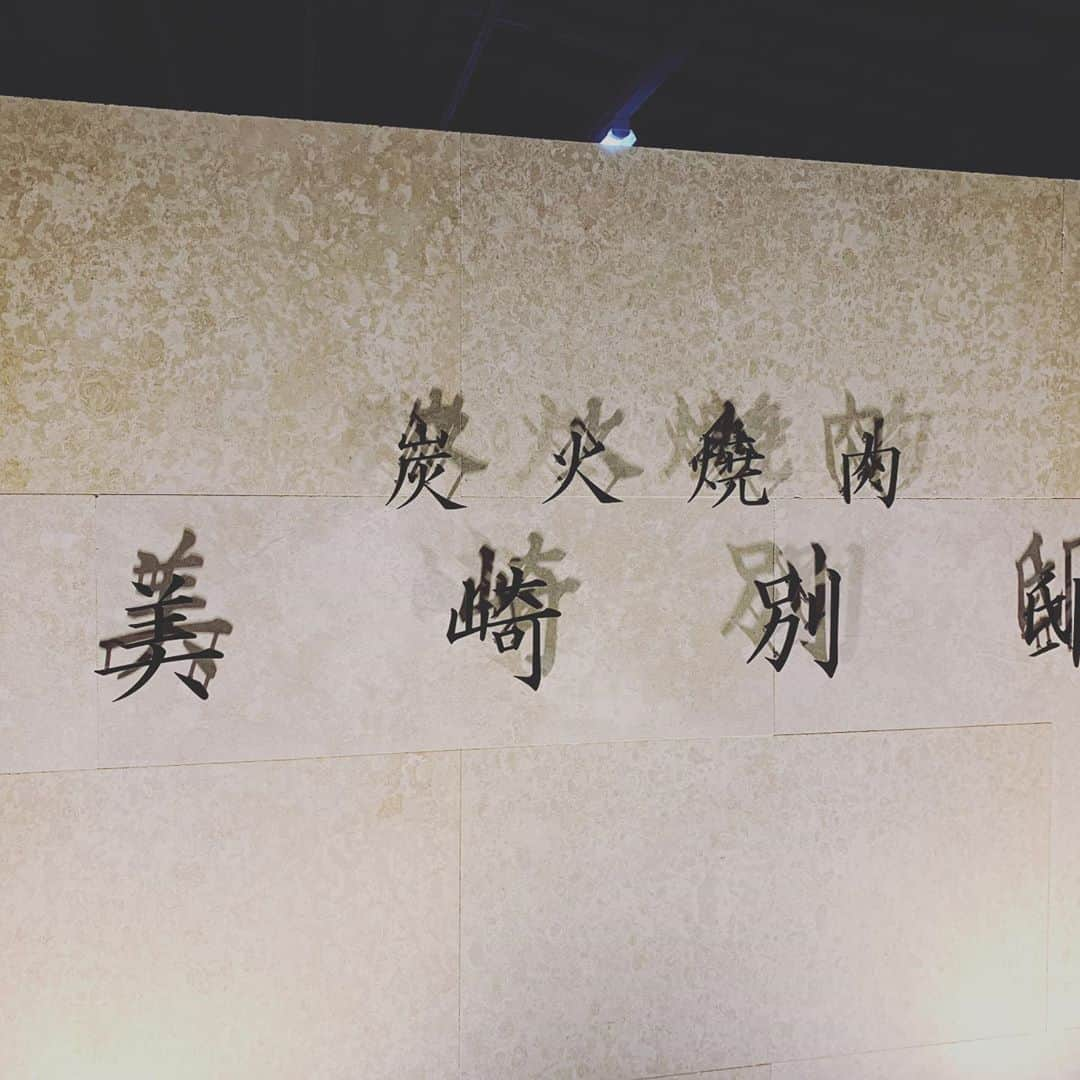 炭火燒肉
美崎別邸